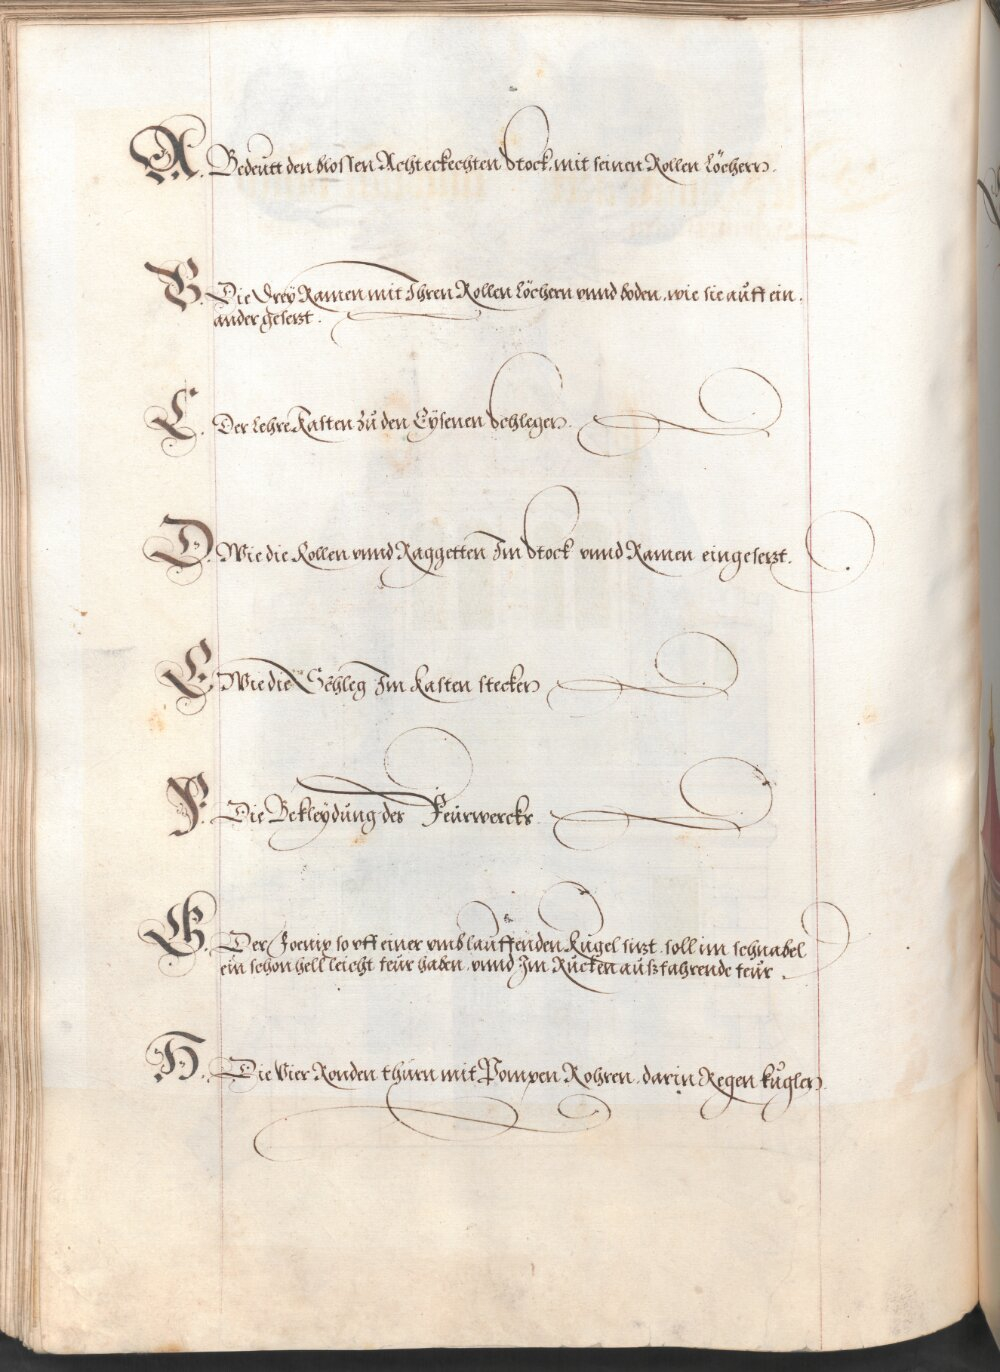 A. Bedeutt den blossen Achteckechten Stock, mit seinen Rollen Löchern.
B. Die Drey Ramen mit Ihren Rollen Löchern vnnd boden, wie sie auff ein,
ander gesetzt.
C. Der Lehre Kasten zu den Eysenen Schlegen.
D. Wie die Rollen vnnd Raggetten Im Stock vnnd Ramen eingesetzt.
E. Wie die Schleg Im Kasten stecken
F. Die Bekleydung des Feurwercks.
G. Der Foenix so vff einer vmblauffenden Kugel sitzt, soll im schnabel
ein schon hell leicht feur haben, vnnd Im Rucken außfahrende feur.
H. Die Vier Ronden thürn mit Pompen Rohren, darin Regen kuglen.